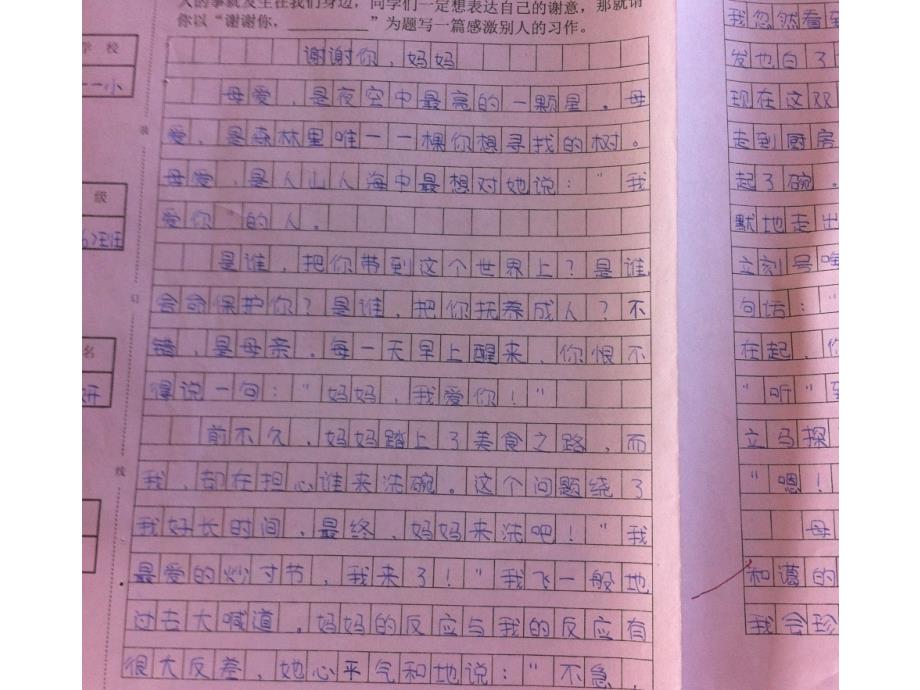 人的事就发生在我们身边，同学们一定想表达自己的谢意，那就请
你以“谢谢你，________”为题写一篇感激别人的习作。
谢谢你，妈妈
母爱，是夜空中最亮的一颗星。母
爱，是森林里唯一一棵你想寻找的树。
母爱，是人山人海中最想对她说：“我
爱你”的人。
是谁，把你带到这个世界上？是谁，
会命保护你？是谁，把你抚养成人？不
错，是母亲。每一天早上醒来，你恨不
得说一句：“妈妈，我爱你！”
前不久，妈妈踏上了美食之路，而
我，却在担心谁来洗碗。这个问题绕了
我好长时间，最终，妈妈来洗吧！“我
最爱的炒寸节，我来了！”我飞一般地
过去大喊道。妈妈的反应与我的反应有
很大反差，她心平气和地说：“不急，
学校
一小
级
名
装
订
线
我忽然看到
发也白了
现在这双
走到厨房
起了碗。
默地走出
立刻号啕
句话：“
在起，你
“听”到
立马探
“嗯！
母
和蔼的
我会珍